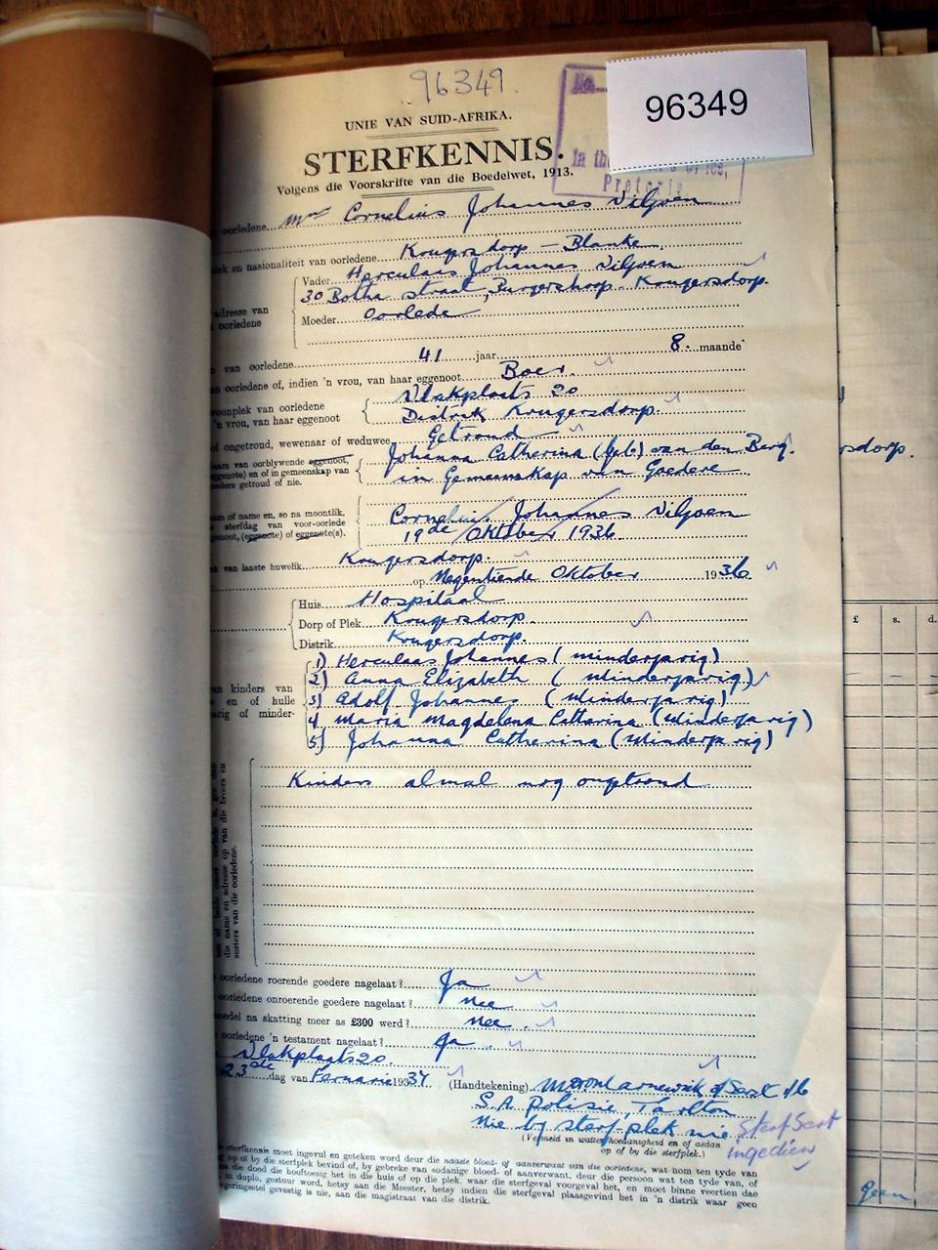 96349
96349
UNIE VAN SUID-AFRIKA.
STERFKENNIS.
Volgens die Voorskrifte van die Boedelwet, 1913.
In th
Pretoria
oorledene Cornelius Johannes Viljoen
en nasionaliteit van oorledene Krugersdorp - Blanke.
Vader Herculaas Johannes Viljoen
30 Botha straat, Burgershorp - Krugersdorp.
adresse van
oorledene
Moeder Oorlede
van oorledene 41 jaar 8. maande
oorledene of, indien 'n vrou, van haar eggenoot Boer.
Vlakplaats 20
woonplek van oorledene
'n vrou, van haar eggenoot
Distrik Krugersdorp.
of ongetroud, wewenaar of weduwee Getroud
Johanna Catherina (geb) van den Berg.
in Gemeenskap van Goedere
van oorblywende eggenoot,
eggenote) en of in gemeenskap van
goedere getroud of nie.
Cornelius Johannes Viljoen
19de Oktober 1936.
of name en, so na moontlik,
sterfdag van voor-oorlede
(eggenote) of eggenote(s).
van laaste huwelik. Krugersdorp.
op Negentiende Oktober 1936
Huis Hospitaal
Dorp of Plek Krugersdorp.
Distrik Krugersdorp.
1) Herculaas Johannes (minderjarig)
2) Anna Elizabeth (Minderjarig)
3) Adolf Johannes (Minderjarig)
4 Maria Magdelena Catharina (Minderjarig)
5) Johanna Catherina (Minderjarig)
van kinders van
en of hulle
of minder-
Kinders almal nog ongetroud
die name en adresse op van die broers en
susters van die oorledene.
oorledene roerende goedere nagelaat? Ja
oorledene onroerende goedere nagelaat? Nee
na skatting meer as £300 werd? Nee.
oorledene 'n testament nagelaat? Ja.
Vlakplaats 20.
23ste dag van 1937 (Handtekening)
S.A. Polisie, Tarlton
Nie by sterf-plek nie. Sterf Sert
ingedien
(Vermeld in watter hoedanigheid en of aldan
op of by die sterfplek.)
sterfkennis moet ingevul en geteken word deur die naaste bloed- of aanverwant van die oorledene, wat hom ten tyde van
of by die sterfplek bevind of, by gebreke van sodanige bloed- of aanverwant, deur die persoon wat ten tyde van, of
die dood die hooftoesig het in die huis of op die plek waar die sterfgeval voorgeval het, en moet binne veertien dae
in duplo, gestuur word, hetsy aan die Meester, hetsy indien die sterfgeval plaasgevind het in 'n distrik waar geen
gevestig is nie, aan die magistraat van die distrik.
rsdorp.
£ s. d.
geen